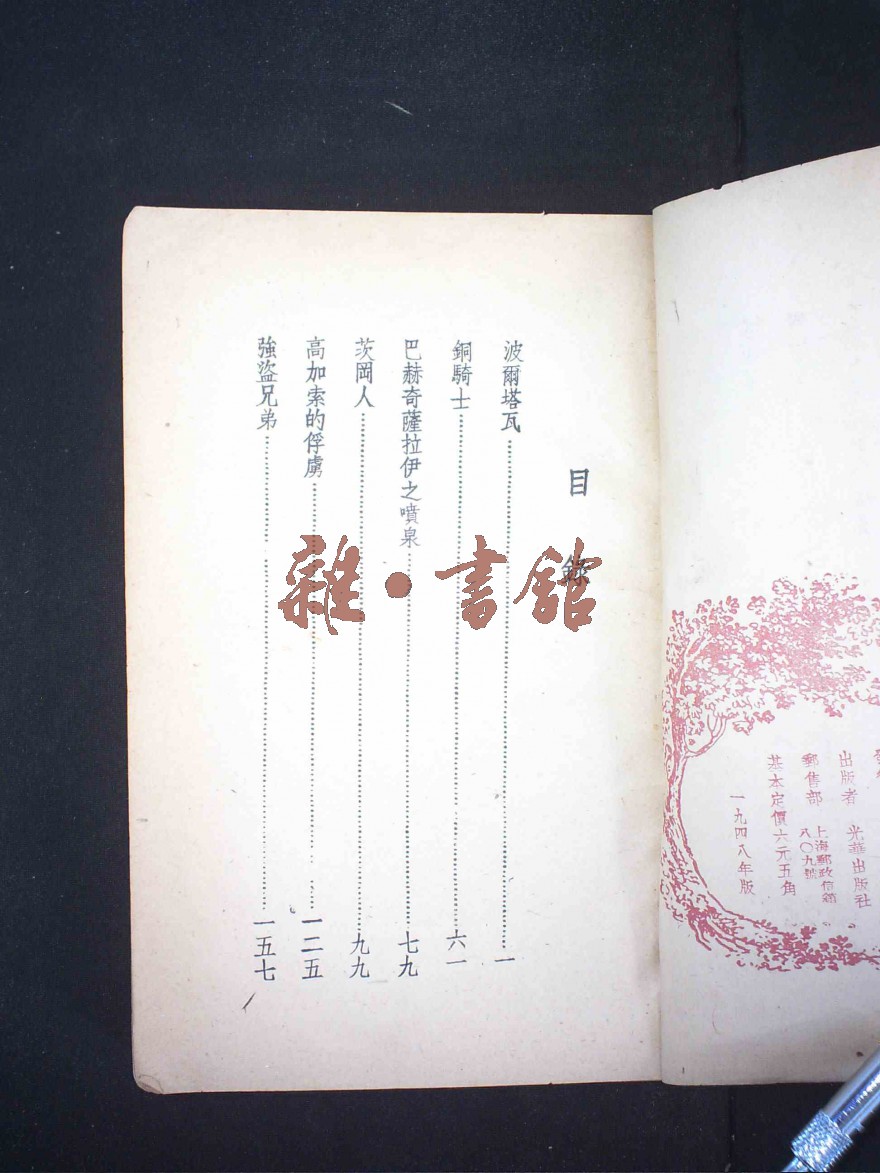 出版者 光華出版社
郵售部 上海郵政信箱
八〇九號
基本定價六元五角
一九四八年版
目錄
波爾塔瓦………一
銅騎士………六一
巴赫奇薩拉伊之噴泉………七九
茨岡人………九九
高加索的俘虜………一二五
強盜兄弟………一五七
雜·書館